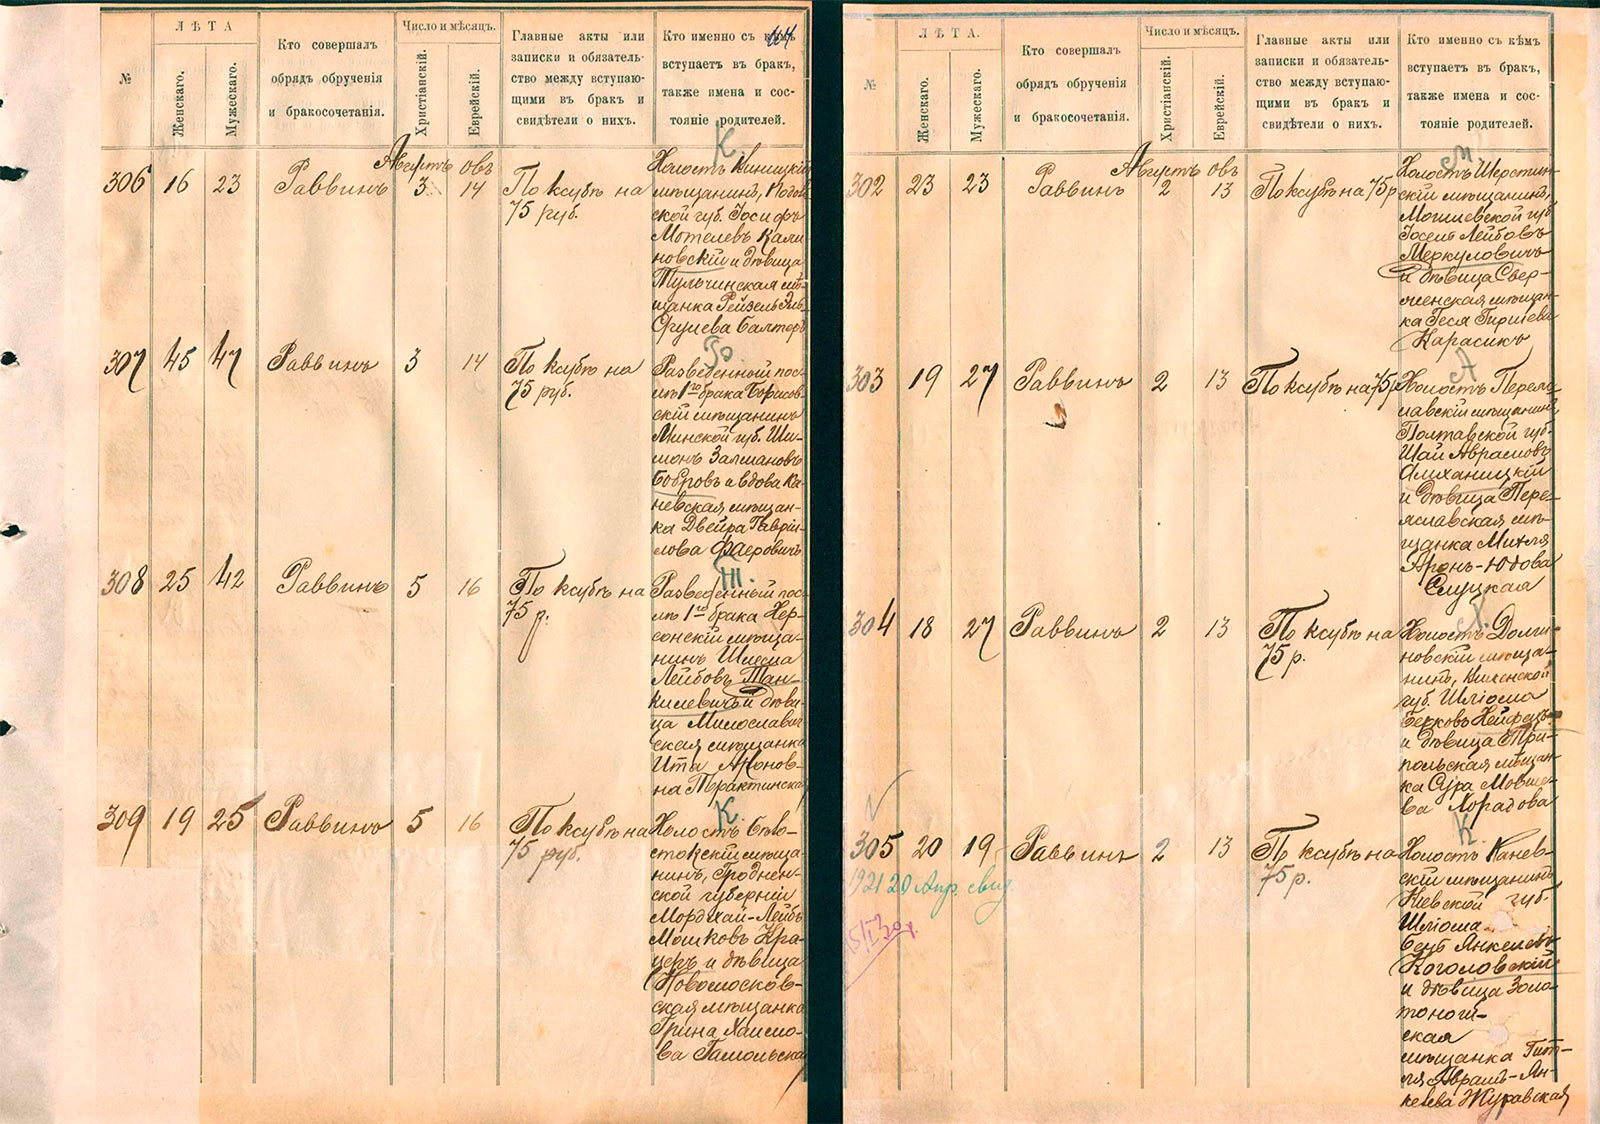 №
ЛѢТА
Женскаго.
Мужескаго.
Кто совершалъ
обрядъ обрученія
и бракосочетанія.
Число и мѣсяцъ.
Христіанскій.
Еврейскій.
Главные акты или
записки и обязатель-
ство между вступаю-
щими въ бракъ и
свидѣтели о нихъ.
Кто именно съ кѣмъ
вступаетъ въ бракъ,
также имена и сос-
тояніе родителей.
К.
Августъ Овъ
306 16 23 Раввинъ 3 14 По ксубѣ на
75 руб.
Холостъ
мѣщанинъ,
ской губ. Іосифъ
Мотелевъ Кали
новскій и дѣвица
Тульчинская мѣ
щанка Рейзель
Балтеръ
307 45 47 Раввинъ 3 14 По ксубѣ на
75 руб.
Разведенный пос-
лѣ 1го брака Борисов
скій мѣщанинъ
Минской губ. Ши-
монъ Залмановъ
Бобровъ и вдова Ка-
невская мѣщан-
ка Двейра Гаврии-
лова Фаеровичъ
Ш.
308 25 42 Раввинъ 5 16 По ксубѣ на
75 р.
Разведенный пос
лѣ 1го брака Хер-
сонскій мѣща-
нинъ Шлема
Лейбовъ Тан-
килевичъ и дѣви
ца Милославич
ская мѣщанка
Ита Аронов-
на Трактинска
К.
309 19 25 Раввинъ 5 16 По ксубѣ на
75 руб.
Холостъ Бѣло-
стокскій мѣща-
нинъ, Гроднен-
ской губерніи
Мордхай-Лейбъ
Мошковъ Кра-
церъ и дѣвица
Новомосков-
ская мѣщанка
Грина Хаимо-
ва Гамольска
№
ЛѢТА.
Женскаго.
Мужескаго.
Кто совершалъ
обрядъ обрученія
и бракосочетанія.
Число и мѣсяцъ.
Христіанскій.
Еврейскій.
Главные акты или
записки и обязатель-
ство между вступаю-
щими въ бракъ и
свидѣтели о нихъ.
Кто именно съ кѣмъ
вступаетъ въ бракъ,
также имена и сос-
тояніе родителей.
М.
Августъ Овъ
302 23 23 Раввинъ 2 13 По ксубѣ на 75 р
Холостъ Шерстин-
скій мѣщанинъ,
Могилевской губ
Іосель Лейбовъ
Меркуловичъ
и дѣвица Свер-
женская мѣщан-
ка Геся Гиршева
Карасикъ
А
303 19 27 Раввинъ 2 13 По ксубѣ на 75 р
Холостъ Перея-
славскій мѣщанинъ
Полтавской губ.
Шай Аврамовъ
Алиханицкій
и дѣвица Пере-
яславская мѣ-
щанка Михля
Аронъ-Юдова
Слуцкая
304 18 27 Раввинъ 2 13 По ксубѣ на
75 р.
Холостъ Долги-
новскій мѣща-
нинъ, Виленской
губ. Шліома
Берковъ Хейфецъ
и дѣвица Три-
польская мѣщан-
ка Сура Мовше-
ва Лорадова
К.
305 20 19 Раввинъ 2 13 По ксубѣ на
75 р.
1921 20 Апр. свид.
Холостъ Канев-
скій мѣщанинъ
Кіевской губ.
Шліома-
Беръ Янкелевъ
Коголовскій
и дѣвица Золо
тонош-
ская
мѣщанка Гит-
ля Абрамъ-Ян-
келева Журавская